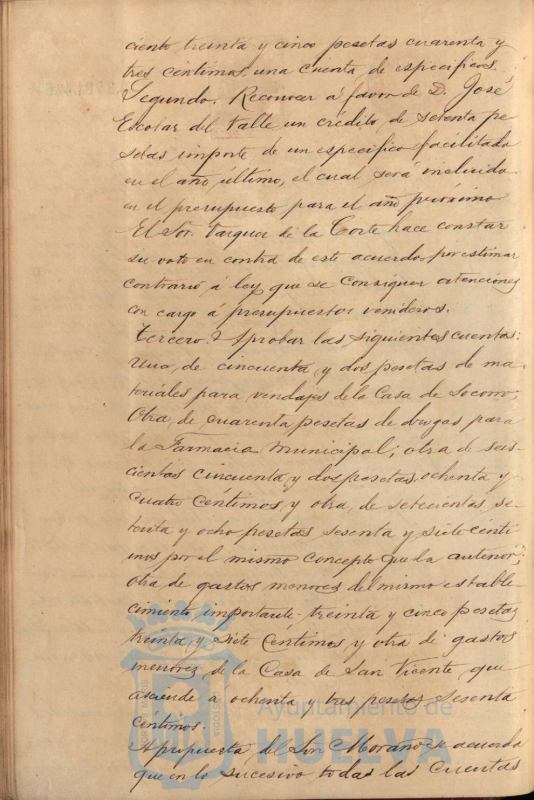 ciento treinta y cinco pesetas cuarenta y
tres centimos, una cuenta de especificos.
Segundo. Reconocer á favor de D. José
Escobar del Valle un crédito de setenta pe
setas importe de un especifico facilitado
en el año último, el cual será incluido
en el presupuesto para el año próximo
El Sor. Vazquez de la Corte hace constar
su voto en contra de este acuerdo por estimar
contrario á ley que se consignen atenciones
con cargo á presupuestos venideros.
Tercero. Aprobar las siguientes cuentas:
Una, de cincuenta y dos pesetas de ma-
teriales para vendajes de la Casa de Socorro;
Otra de cuarenta pesetas de drogas para
la Farmacia Municipal; otra de seis-
cientas cincuenta y dos pesetas ochenta y
cuatro centimos y otra, de setecientas, se-
tenta y ocho pesetas sesenta y siete centi-
mos por el mismo concepto que la anterior;
otra de gastos menores del mismo estable-
cimiento importante treinta y cinco pesetas
treinta y siete centimos y otra de gastos
menores de la Casa de San Vicente, que
asciende a ochenta y tres pesetas sesenta
centimos.
A propuesta del Sor. Morano se acuerda
que en lo sucesivo todas las cuentas
Ayuntamiento de
HUELVA